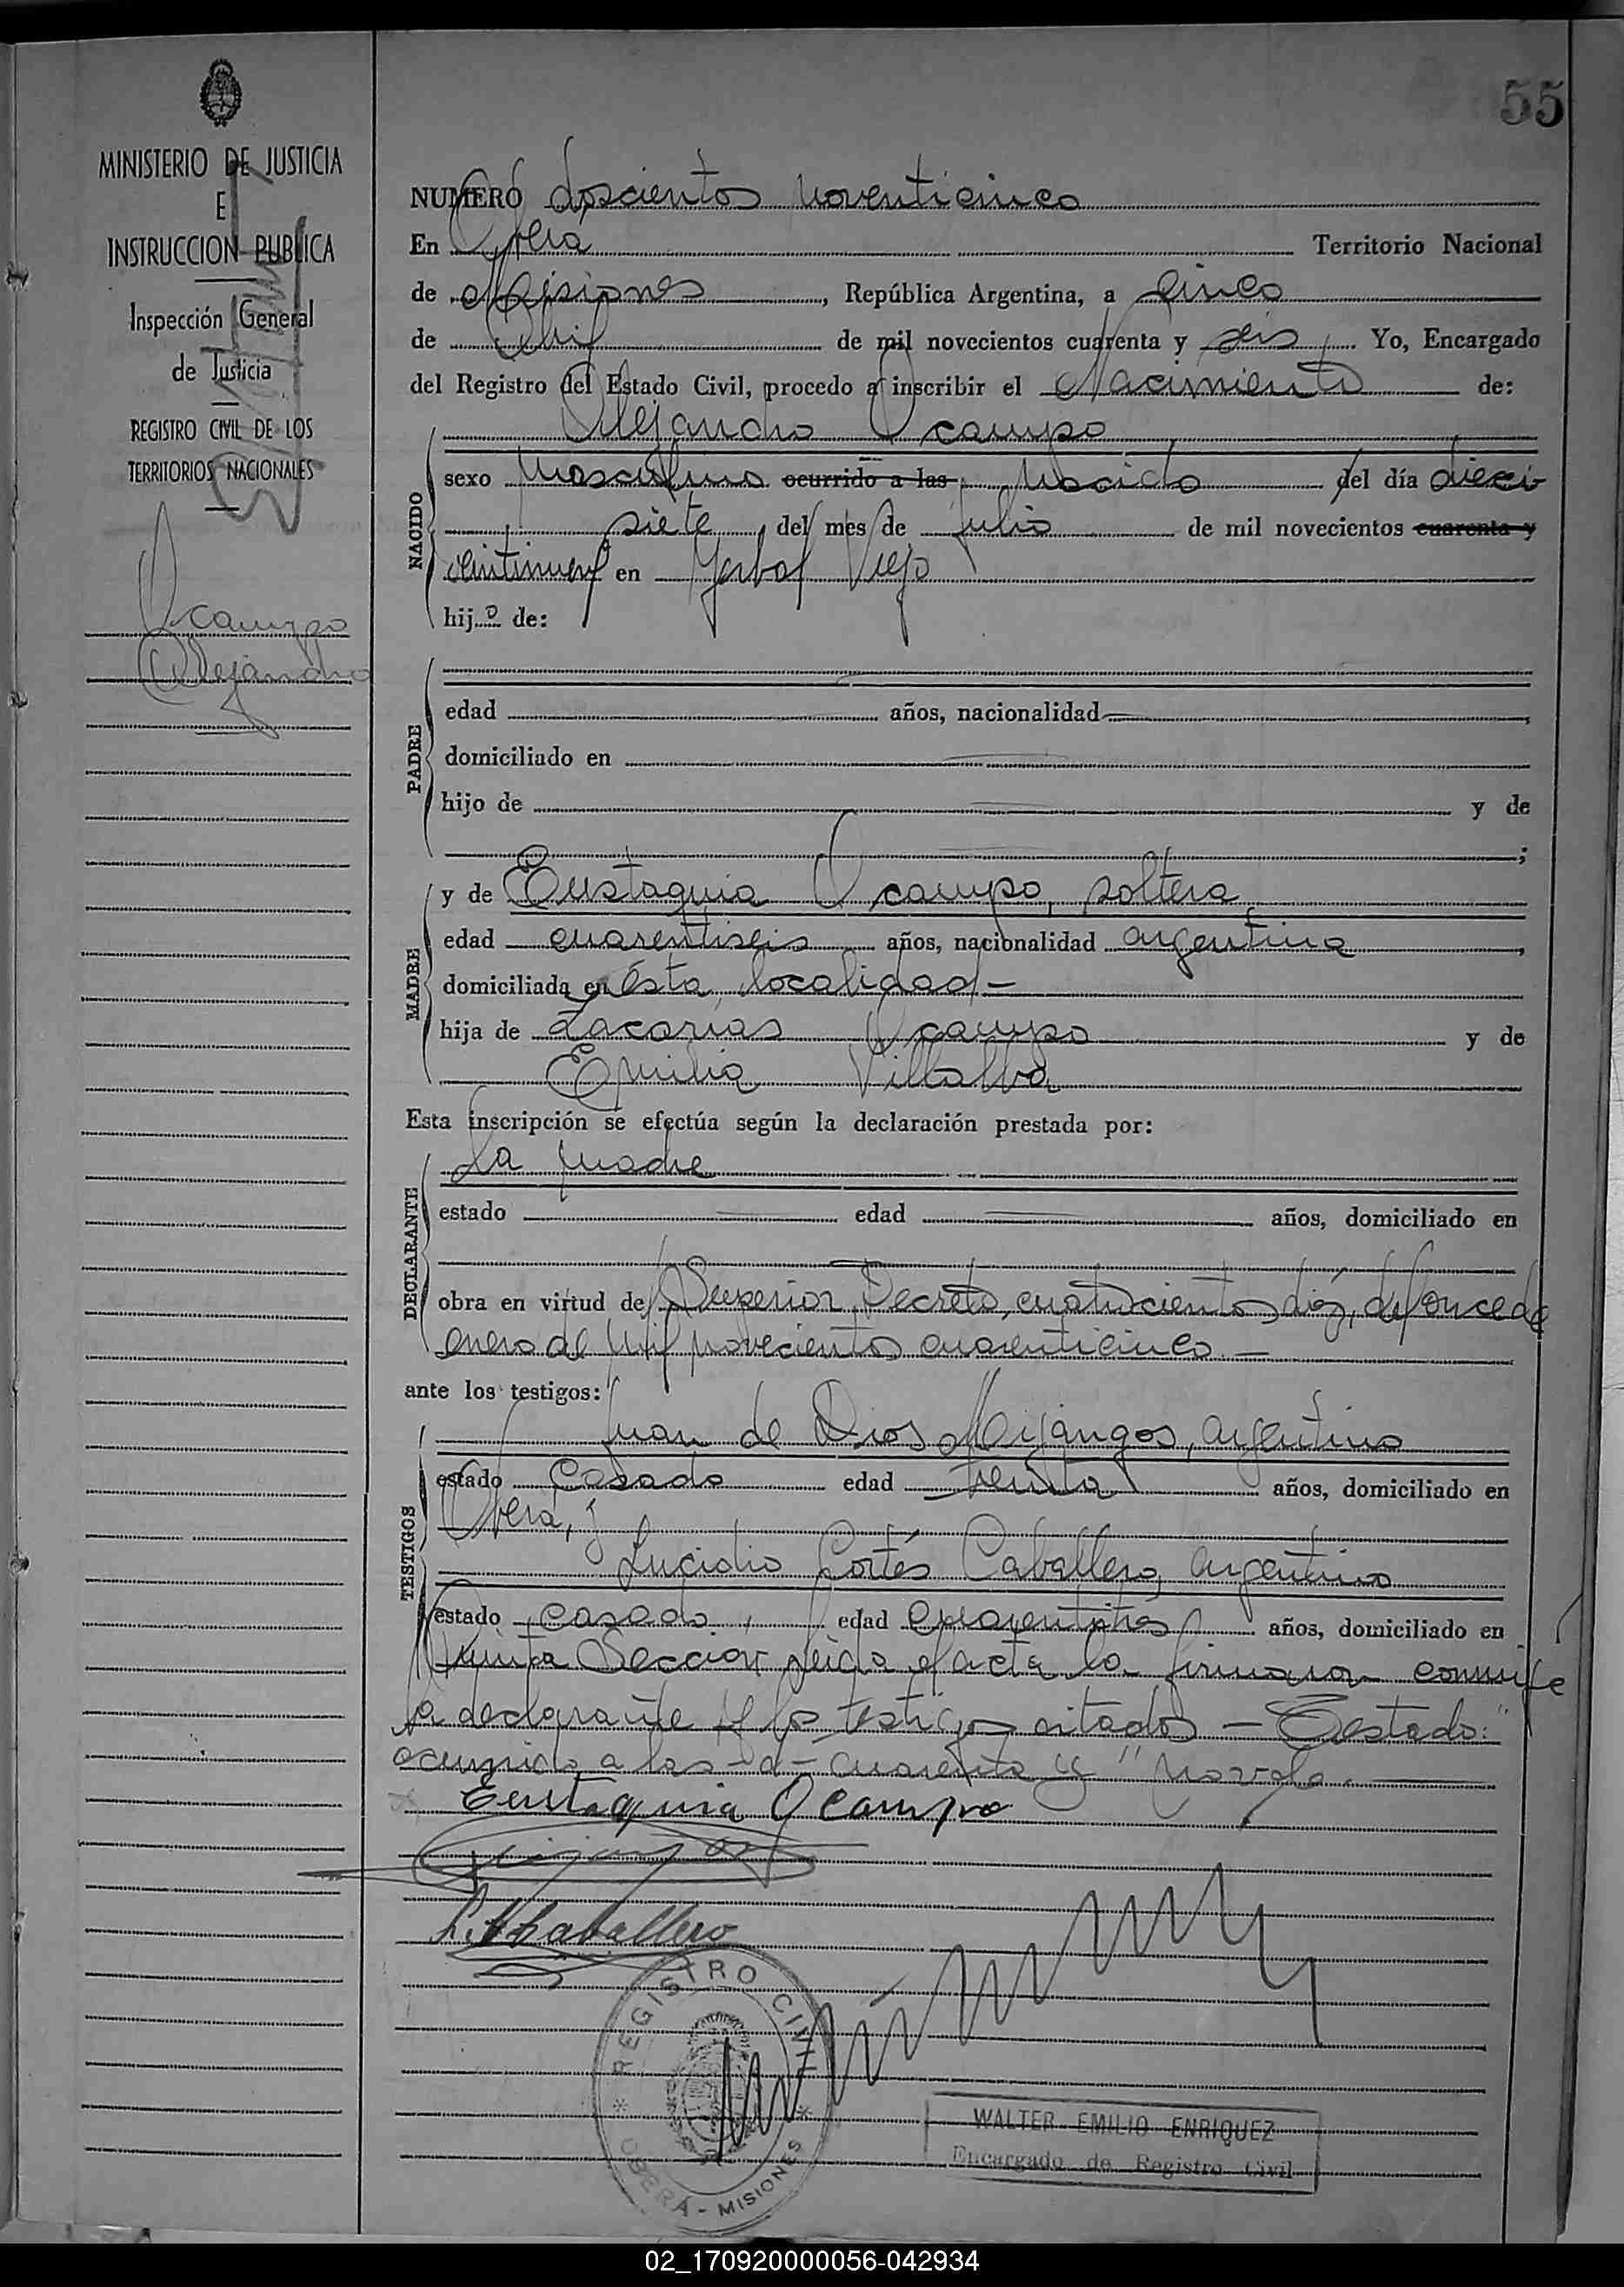 55
MINISTERIO DE JUSTICIA
E
INSTRUCCION PUBLICA
Inspección General
de Justicia
REGISTRO CIVIL DE LOS
TERRITORIOS NACIONALES
Ocampo
Alejandro
NUMERO doscientos noventicinco
En Oberá Territorio Nacional
de Misiones, República Argentina, a cinco
de Abril de mil novecientos cuarenta y seis. Yo, Encargado
del Registro del Estado Civil, procedo a inscribir el Nacimiento de:
Alejandro Ocampo
NACIDO
sexo Masculino ocurrido a las Nacido del día dieci
siete del mes de Julio de mil novecientos cuarenta y
veintinueve en Yerbal Viejo
hijo de:
PADRE
edad años, nacionalidad
domiciliado en
hijo de y de
;
MADRE
y de Eustaquia Ocampo, soltera,
edad cuarentiseis años, nacionalidad argentina,
domiciliada en ésta localidad.-
hija de Zacarias Ocampo y de
Emilia Villalba
Esta inscripción se efectúa según la declaración prestada por:
DECLARANTE
La madre
estado edad años, domiciliado en
obra en virtud del Superior Decreto, cuatrocientos diez, del once de
enero de mil novecientos cuarenticinco.-
ante los testigos:
TESTIGOS
Juan de Dios Mijangos, argentino
estado casado edad treinta años, domiciliado en
Oberá, y
Lucidio Cortés Caballero, argentino
estado casado, edad cuarentitres años, domiciliado en
Quinta Sección; leida el acta la firmaron conmigo
la declarante y los testigos citados - Testado: "
ocurrido a las - a - cuarenta y" No vale.
Eustaquia Ocampo
L. Caballero
REGISTRO CIVIL
OBERÁ - MISIONES
WALTER EMILIO ENRIQUEZ
Encargado de Registro Civil
02_170920000056-042934